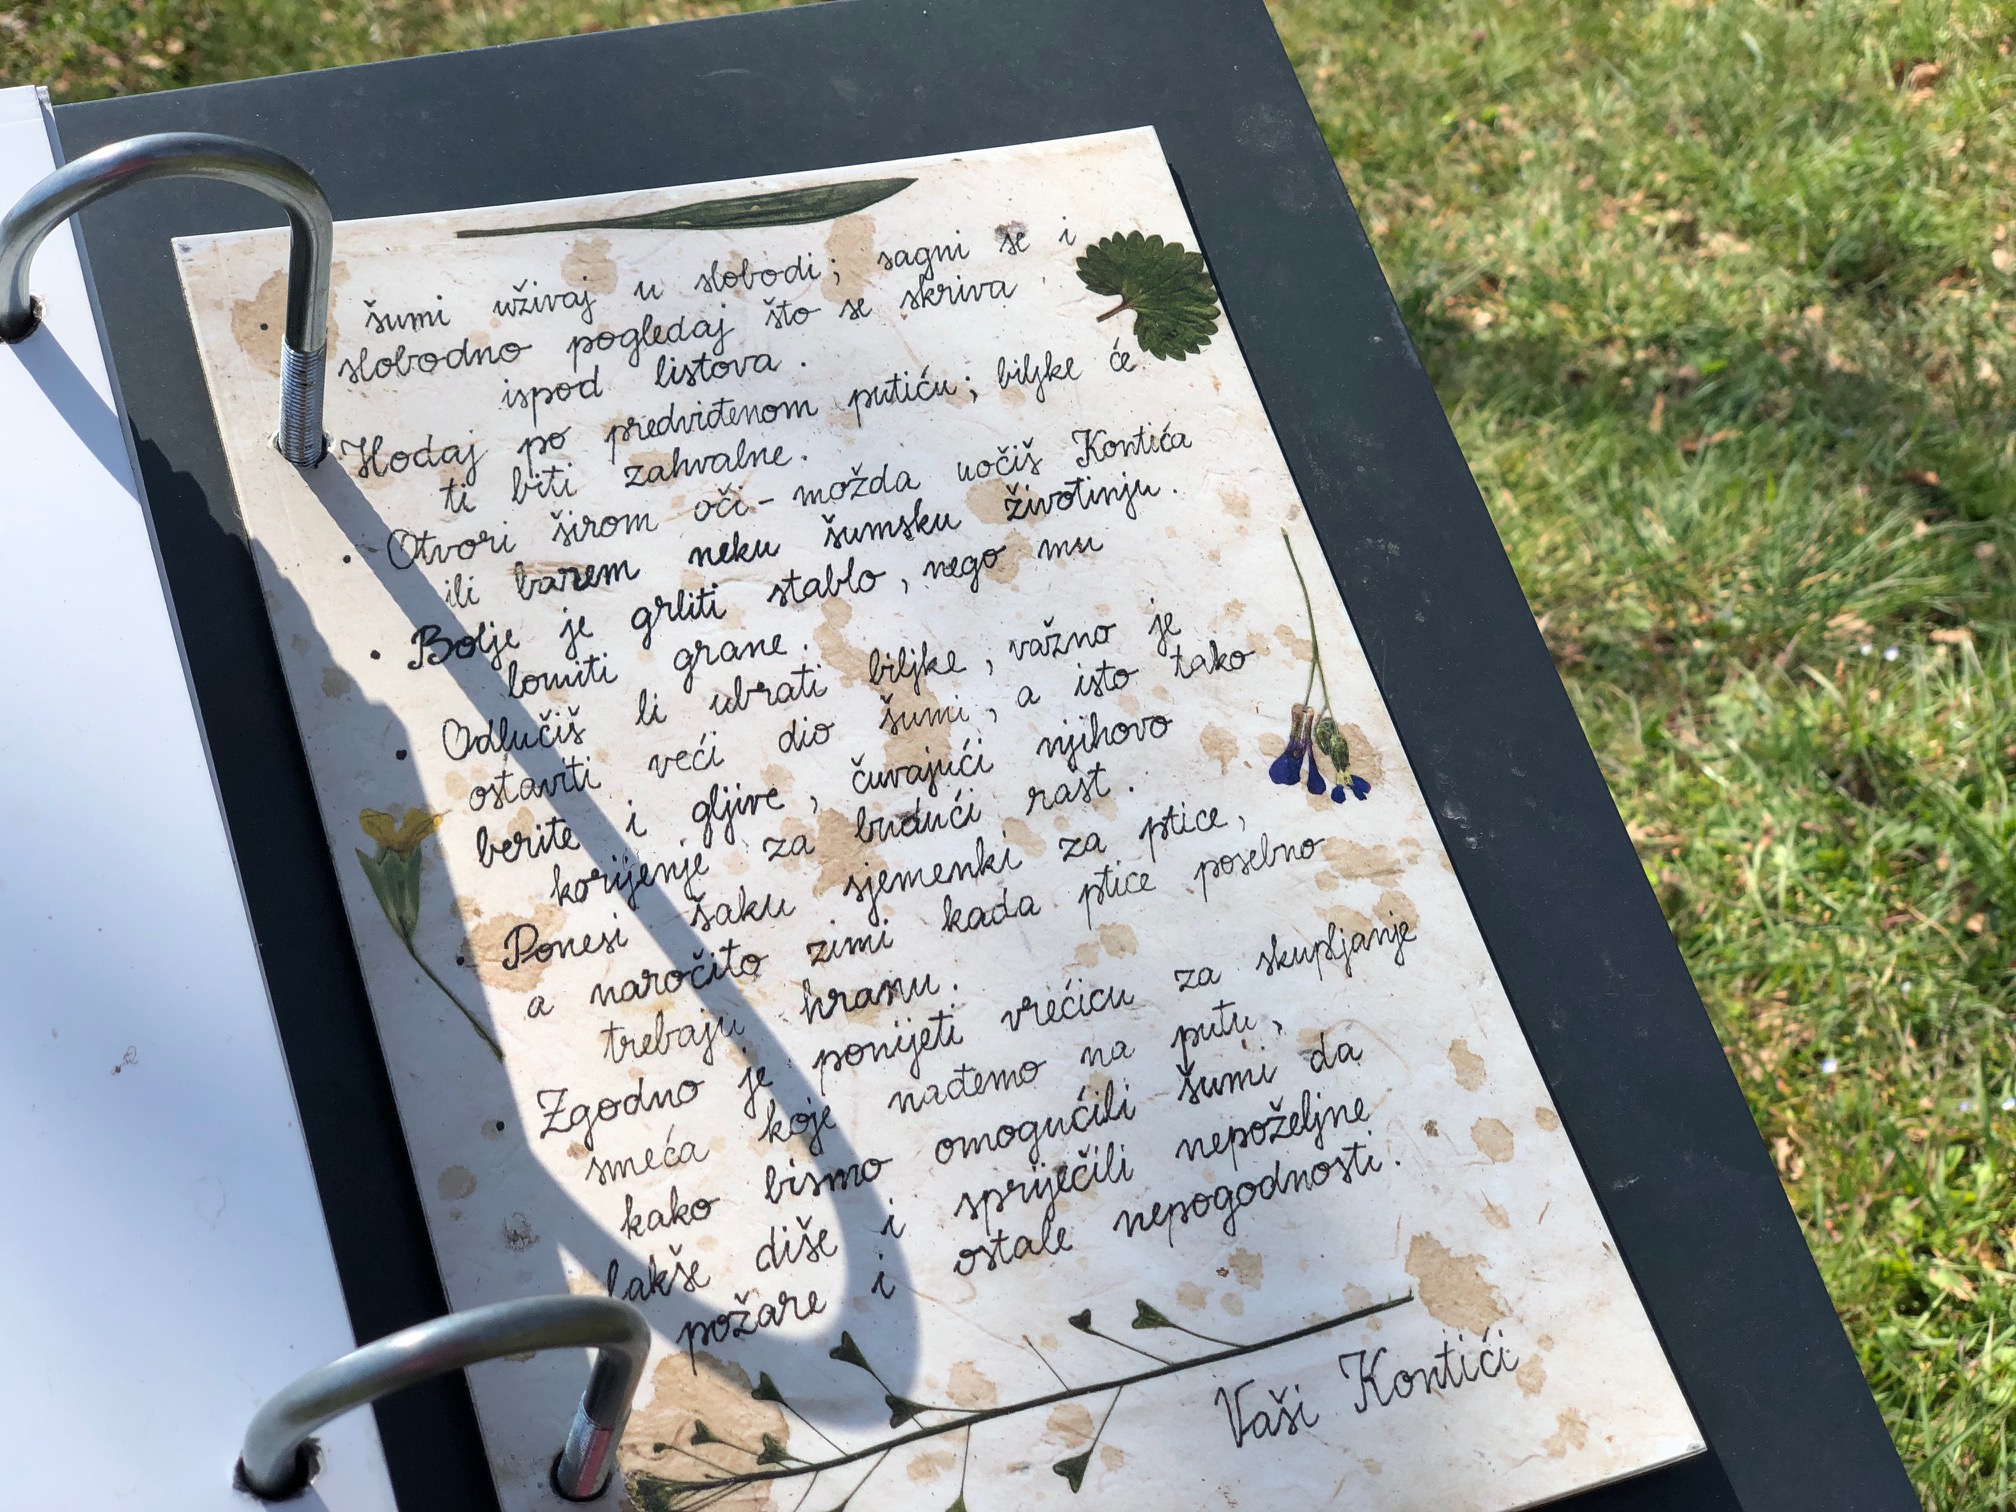 šumi uživaj u slobodi; sagni se i
slobodno pogledaj što se skriva
ispod listova.
Hodaj po predviđenom putiću; biljke će
ti biti zahvalne.
Otvori širom oči - možda uočiš Kontića
ili barem neku šumsku životinju.
Bolje je grliti stablo, nego mu
lomiti grane.
Odlučiš li ubrati biljke, važno je
ostaviti veći dio šumi, a isto tako
berite i gljive, čuvajući njihovo
korijenje za budući rast.
Ponesi šaku sjemenki za ptice,
a naročito zimi kada ptice posebno
trebaju hranu.
Zgodno je ponijeti vrećicu za skupljanje
smeća koje nađemo na putu,
kako bismo omogućili šumi da
lakše diše i spriječili nepoželjne
požare i ostale nepogodnosti.
Vaši Kontići